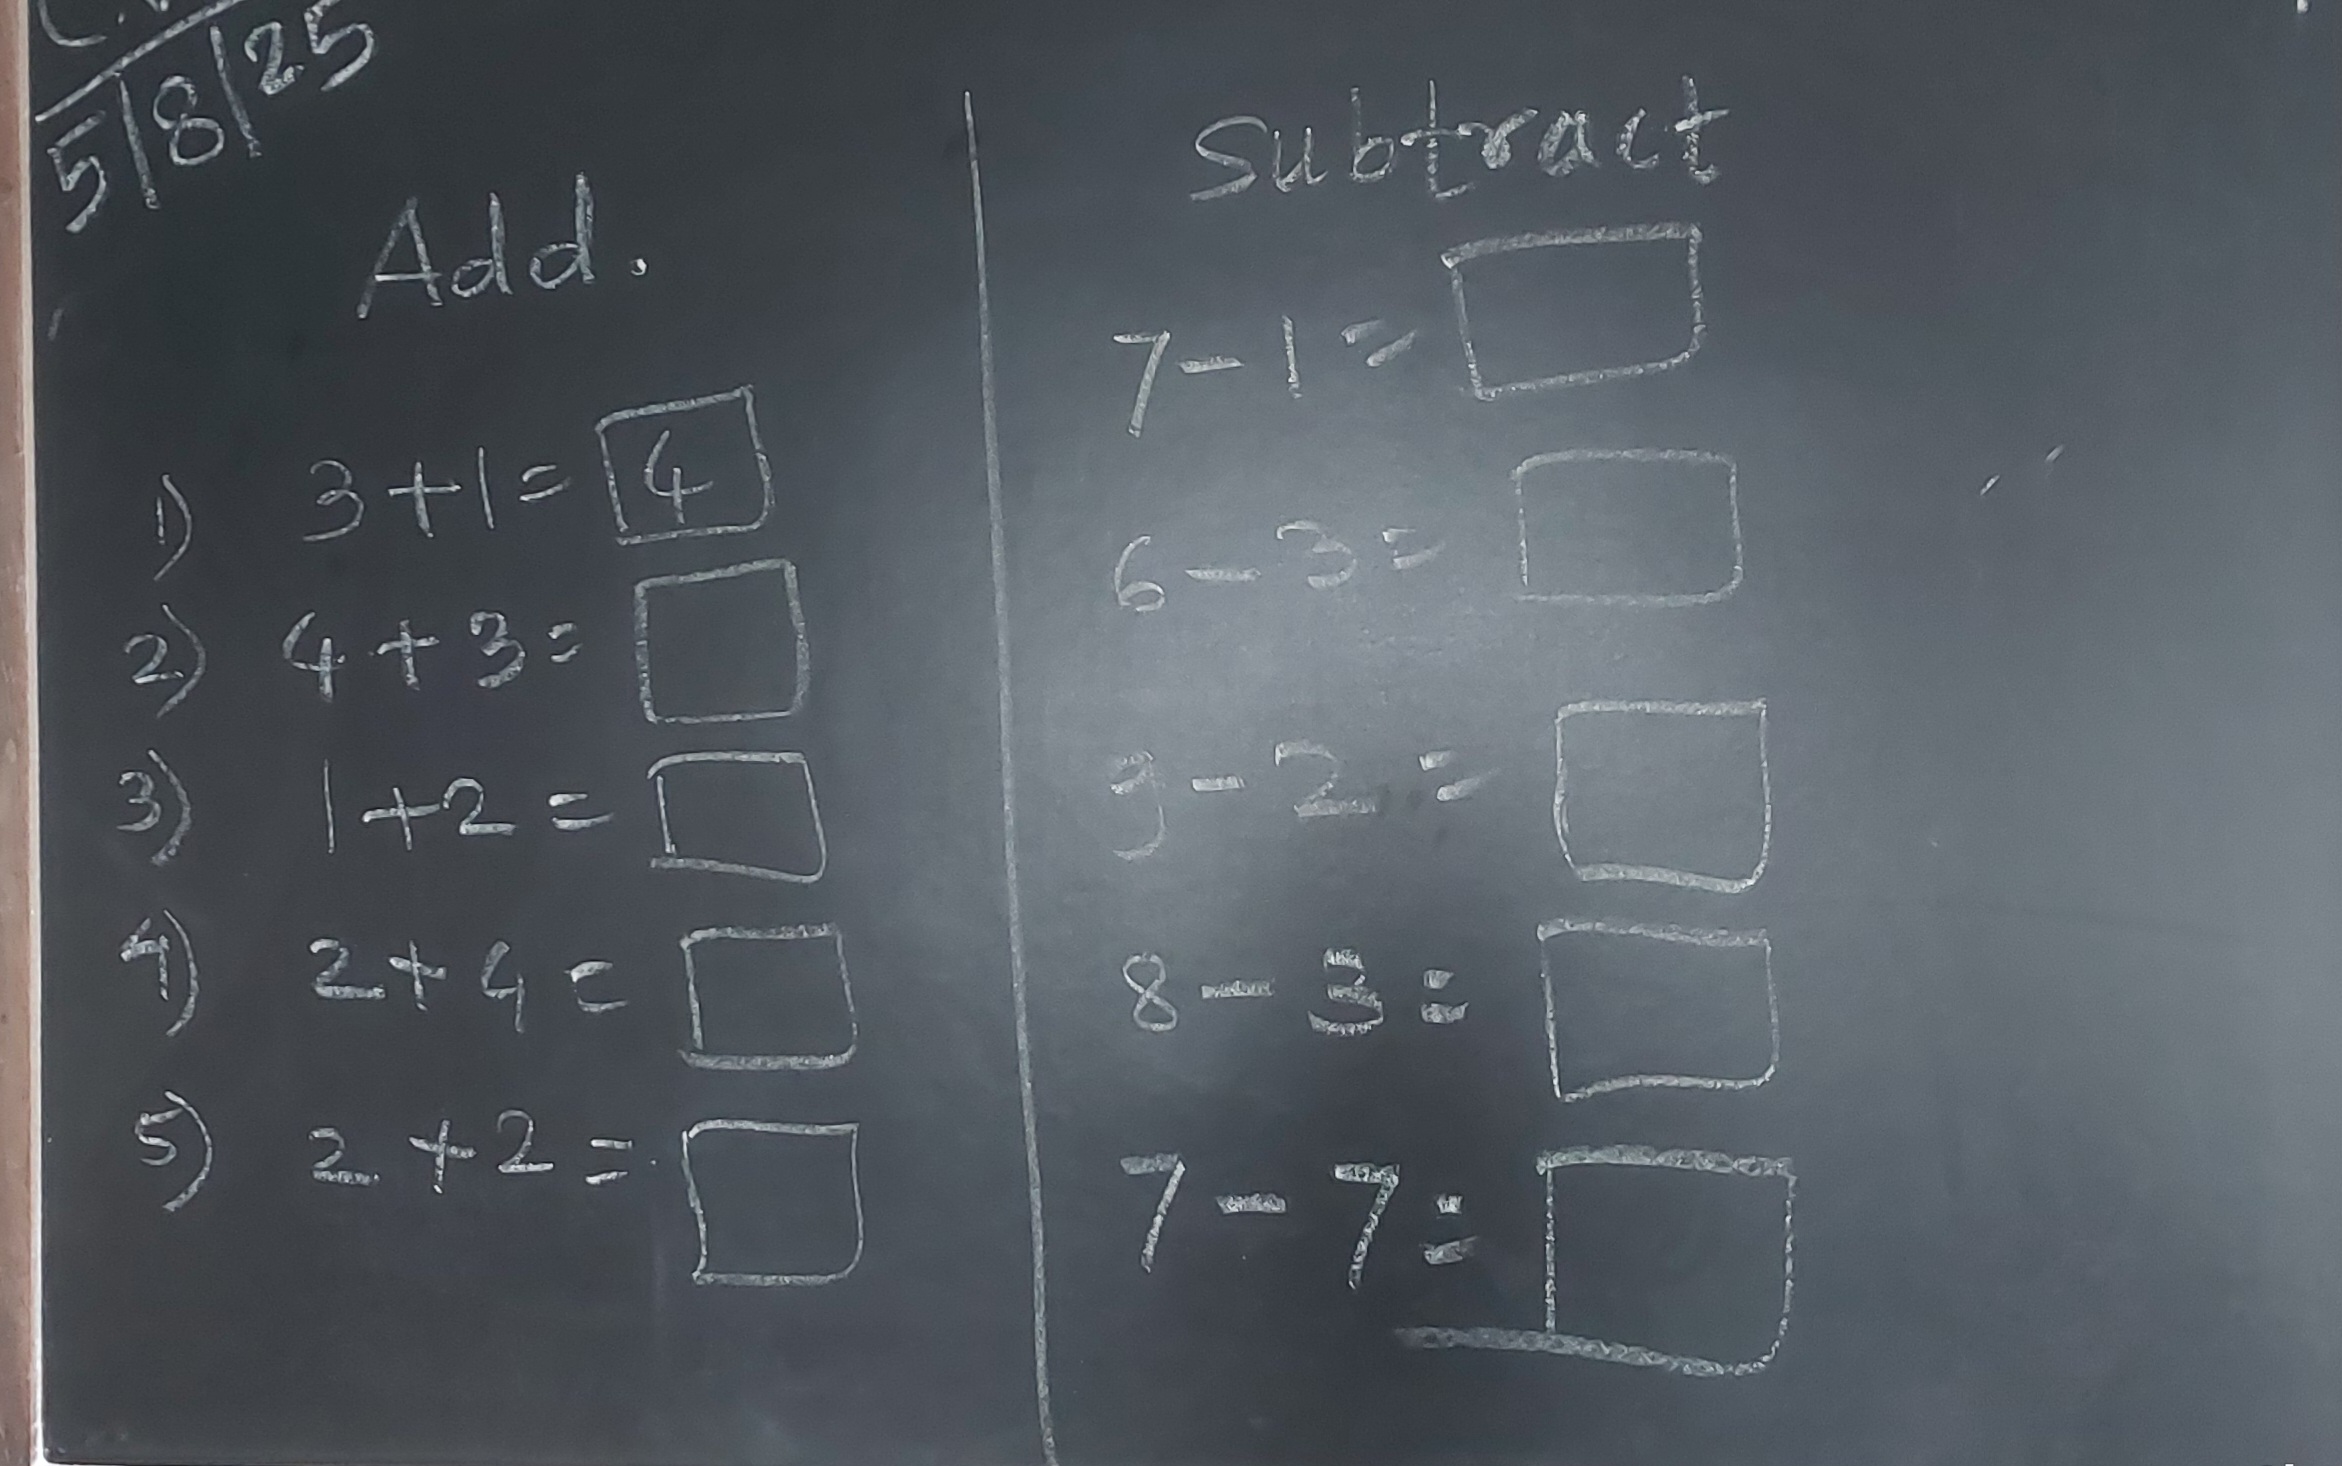 5/8/25
Add.
1) 3+1= 4
2) 4+3=
3) 1+2=
4) 2+4=
5) 2+2=
Subtract
7-1=
6-3=
9-2=
8-3=
7-7=